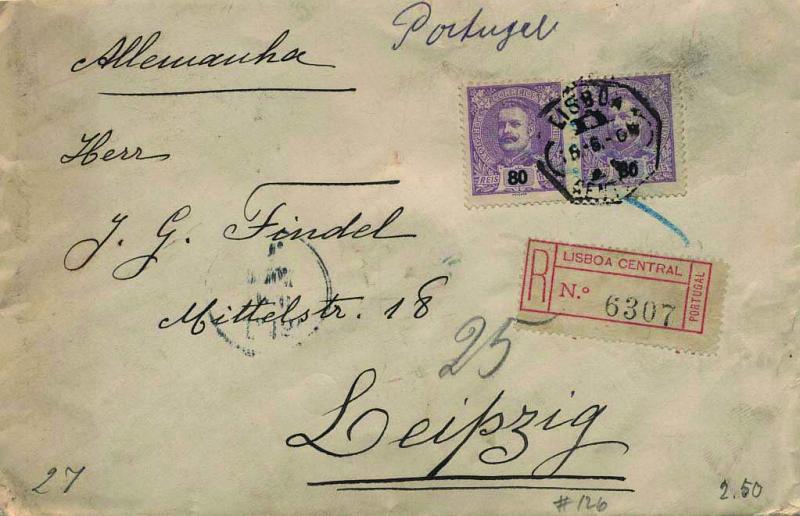 Portugal
Allemanha
CORREIOS
80
REIS
80
LISBOA
CENTRAL
Herr
J. G. Findel
LISBOA CENTRAL
R
N.º 6307
PORTUGAL
Mittelstr. 18
25
Leipzig
27
#126
2.50